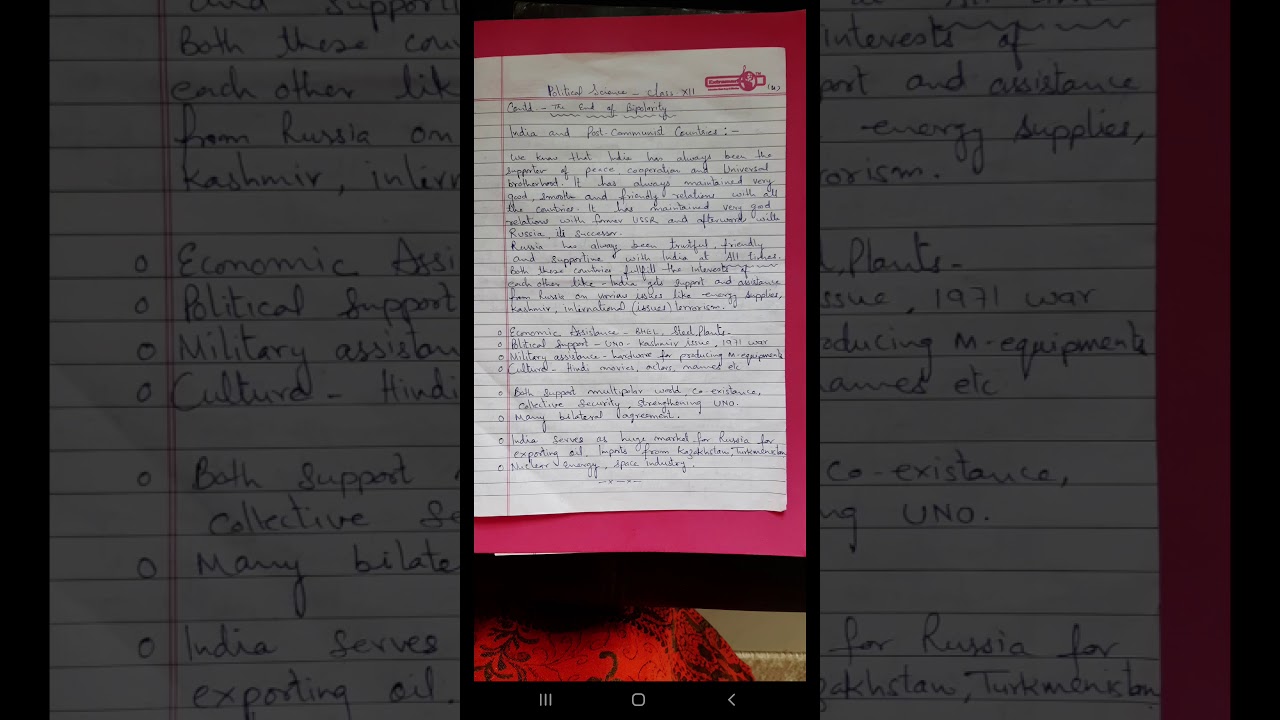 Political Science - Class XII
(14)
Contd. - The End of Bipolarity
India and Post-Communist Countries : -
We know that India has always been the
supporter of peace, cooperation and Universal
brotherhood. It has always maintained very
good, smooth and friendly relations with all
the countries. It has maintained very good
relations with former USSR and afterwords with
Russia, its successor.
Russia has always been trustful, friendly
and supportive with India at All times.
Both these countries fullfill the interests of
each other like - India gets support and assistance
from Russia on various issues like - energy supplies,
Kashmir, international (issues) terrorism.
o Economic Assistance - BHEL, Steel Plants -
o Political Support - UNO - Kashmir issue, 1971 war
o Military assistance - hardware for producing M-equipments
o Culture - Hindi movies, actors, names etc
o Both support multipolar world, Co-existance,
collective Security, strengthening UNO.
o Many bilateral agreement.
o India Serves as huge market for Russia for
exporting oil. Imports from Kazakhstan, Turkmenistan
o Nuclear energy, space industry.
-x-x-